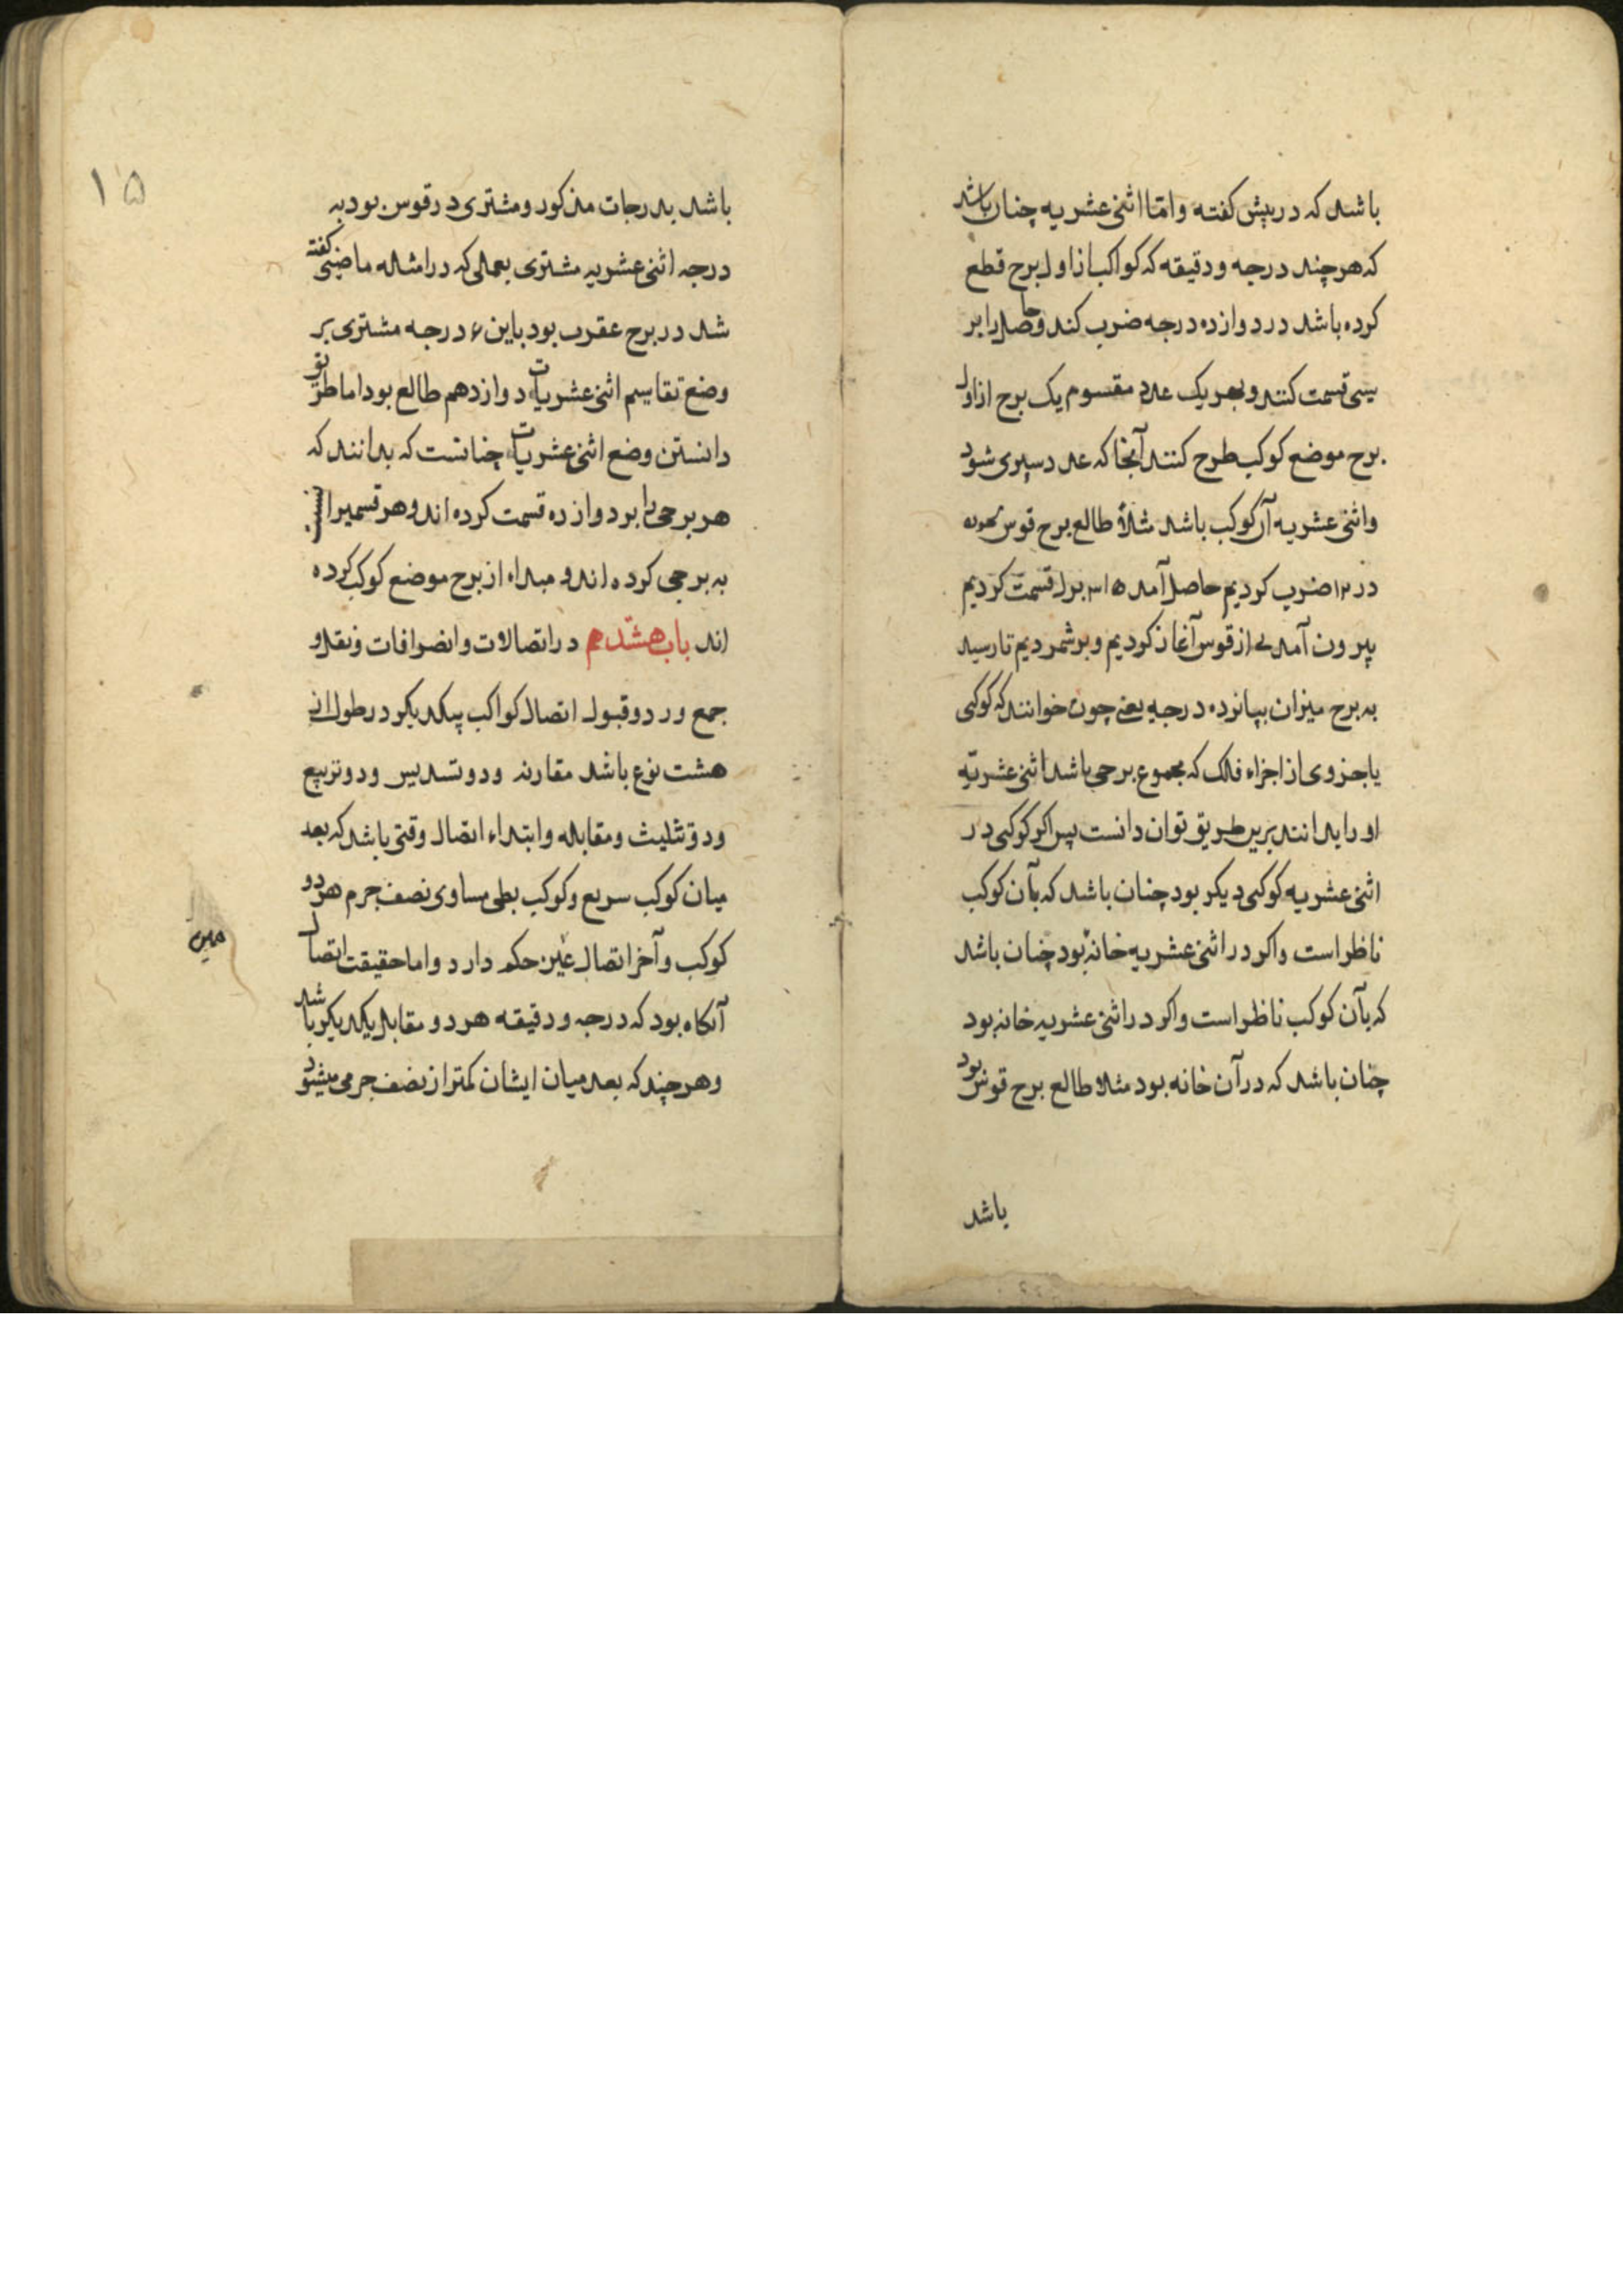 باشد که در پیش گفته و امّا اثنی‌عشریه چنان باشد
که هر چند درجه و دقیقه که کواکب از اول برج قطع
کرده باشد در دوازده درجه ضرب کند و حاصل را بر
سی قسمت کنند و بهر یک عدد مقسوم یک برج از اول
برج موضع کوکب طرح کنند آنجا که عدد سپری شود
و اثنی‌عشریه آن کوکب باشد مثلاً طالع برج قوس
در ۱۲ ضرب کردیم حاصل آمد ۳۱۵ برل قسمت کردیم
بیرون آمد ی از قوس آغاز کردیم و بر شمردیم تا رسید
به برج میزان بپانزده درجه یعنی چون خوانند که کوکبی
یا جزوی از اجزاء فلک که مجموع برجی باشد اثنی‌عشریّه
او را بدانند برین طریق توان دانست پس اکر کوکبی در
اثنی‌عشریه کوکبی دیکر بود چنان باشد که بآن کوکب
ناظر است و اکر در اثنی‌عشریه خانه بود چنان باشد
که بآن کوکب ناظر است و اکر در اثنی‌عشریه خانه بود
چنان باشد که در آن خانه بود مثلا طالع برج قوس بود
باشد
۱۵
باشد بدرجات مذکور و مشتری در قوس بود به
درجه اثنی‌عشریه مشتری بعملی که در امثاله ماضی گفته
شد در برج عقرب بود باین ۶ درجه مشتری بر
وضع تقاسیم اثنی‌عشریات دوازدهم طالع بود اما طریق
دانستن وضع اثنی‌عشریات چنانست که بدانند که
هر برجی را بر دوازده قسمت کرده اند و هر قسمیرا نسبت
به برجی کرده اند و مبداء از برج موضع کوکب کرده
اند باب هشتدهم در اتصالات و انصرافات و نقل و
جمع و رد و قبول اتصال کواکب بیکدیکر در طول از
هشت نوع باشد مقارنه و دو تسدیس و دو تربیع
و دو تثلیث و مقابله و ابتداء اتصال وقتی باشد که بعد
میان کوکب سریع و کوکب بطی مساوی نصف جرم هر دو
کوکب و آخر اتصال عین حکم دارد و اما حقیقت اتصال
آنکاه بود که درجه و دقیقه هر دو مقابل یکدیکر باشد
و هر چند که بعد میان ایشان کمتر از نصف جرمی میشود
همین